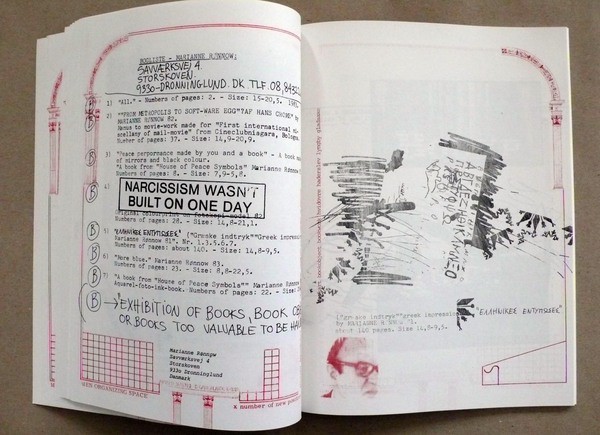 BOGLISTE - MARIANNE RØNNOW:
SAVVÆRKSVEJ 4.
STORSKOVEN.
9330-DRONNINGLUND. DK TLF. 08,8432
1) "All." - Numbers of pages: 2. - Size: 15-20,3. 198
2) ""FROM METROPOLIS TO SOFT-WARE EGG"?AF HANS CROSE" by
MARIANNE RØNNOW 82.
Manus to movie-work made for "First international
scellany of mail-movie" from Cineclubniagara, Bologna.
Number of pages: 37. - Size: 14,9-20,9.
3) "Peace performance made by you and a book" - A book
of mirrors and black colour.
"A book from "House of Peace Symbols" Marianne Rønnow
Number of pages: 8. - Size: 7,9-5,8.
4)
NARCISSISM WASN'T
BUILT ON ONE DAY
Numbers of pages: 28. - Size: 14,8-21,1.
5) "ΕΛΛΗΝΙΚΕΣ ΕΝΤΥΠΩΣΕΙΣ" ("Græske indtryk""Greek impress
Marianne Rønnow 81". Nr. 1.3.5.6.7.
Numbers of pages: about 140. - Size: 14,8-9,5.
6) "More blue." Marianne Rønnow 83.
Numbers of pages: 23. - Size: 8,8-22,5.
7) "A book from "House of Peace Symbols"" Marianne Rønnow
Aquarel-foto-ink-book. Numbers of pages: 22. - Size
B → EXHIBITION OF BOOKS, BOOK
OR BOOKS TOO VALUABLE TO BE
Marianne Rønnow
Savværksvej 4
Storskoven
9330 Dronninglund
Danmark
WEB ORGANIZING SPACE
x number of new
("græske indtryk""greek impression
by MARIANNE RØNNOW 81.
about 140 pages. Size 14,8-9,5.
"ΕΛΛΗΝΙΚΕΣ ΕΝΤΥΠΩΣΕΙΣ"